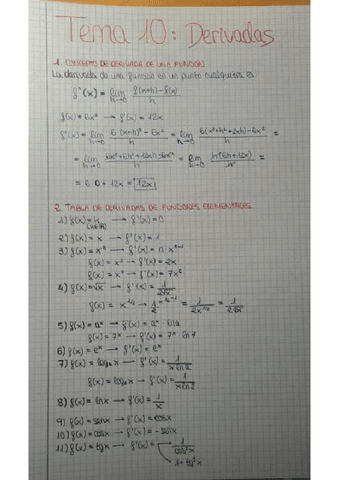 Tema 10: Derivadas
1. CONCEPTO DE DERIVADA DE UNA FUNCIÓN
La derivada de una función en un punto cualquiera es
f'(x) = lim h→0 f(x+h)-f(x) / h
f(x) = 6x² → f'(x) = 12x
f'(x) = lim h→0 6(x+h)²-6x² / h = lim h→0 6(x²+h²+2xh)-6x² / h =
= lim h→0 6x²+6h²+12xh-6x² / h = lim h→0 h(6h+12x) / h =
= 6·0 + 12x = 12x
2. TABLA DE DERIVADAS DE FUNCIONES ELEMENTALES
1) f(x) = k → f'(x) = 0
2) f(x) = x → f'(x) = 1
3) f(x) = xⁿ → f'(x) = n·xⁿ⁻¹
f(x) = x² → f'(x) = 2x
f(x) = x⁷ → f'(x) = 7x⁶
4) f(x) = √x → f'(x) = 1 / 2√x
f(x) = x^1/2 → 1/2 = 1 / 2x^1/2 = 1 / 2√x
5) f(x) = aˣ → f'(x) = aˣ · ln a
f(x) = 7ˣ → f'(x) = 7ˣ · ln 7
6) f(x) = eˣ → f'(x) = eˣ
7) f(x) = logₐx → f'(x) = 1 / x ln a
f(x) = log₂x → f'(x) = 1 / x ln 2
8) f(x) = lnx → f'(x) = 1/x
9) f(x) = senx → f'(x) = cosx
10) f(x) = cosx → f'(x) = -senx
11) f(x) = tgx → f'(x) = 1 / cos²x
1 + tg²x